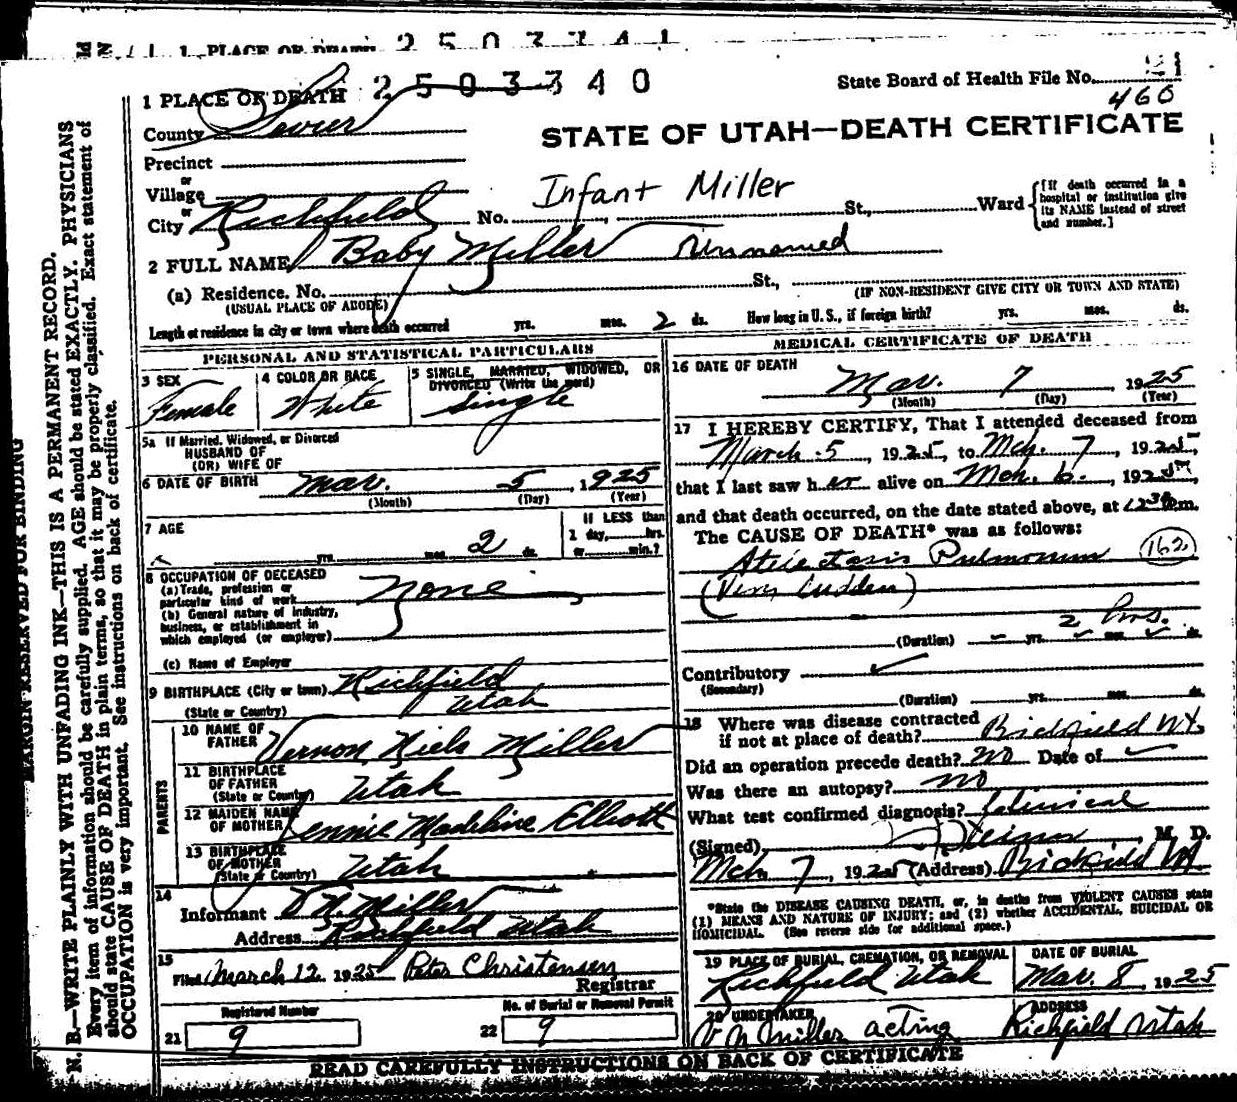 1 PLACE OF DEATH 2 5 0 3 3 4 1
2 5 0 3 3 4 0
State Board of Health File No. 21
460
1 PLACE OF DEATH
County Sevier
STATE OF UTAH—DEATH CERTIFICATE
Precinct
or
Village
or
City Richfield No. Infant Miller St., Ward
[If death occurred in a hospital or institution give its NAME instead of street and number.]
2 FULL NAME Baby Miller Unnamed
(a) Residence. No. St.,
(USUAL PLACE OF ABODE)
(IF NON-RESIDENT GIVE CITY OR TOWN AND STATE)
Length of residence in city or town where death occurred yrs. mos. 2 ds. How long in U.S., if foreign birth? yrs. mos. ds.
PERSONAL AND STATISTICAL PARTICULARS
3 SEX
Female
4 COLOR OR RACE
White
5 SINGLE, MARRIED, WIDOWED, OR DIVORCED (Write the word)
Single
5a If Married, Widowed, or Divorced
HUSBAND OF
(OR) WIFE OF
6 DATE OF BIRTH Mar. 5, 1925
(Month) (Day) (Year)
7 AGE
yrs. mos. 2 ds.
If LESS than
1 day, hrs.
or min.?
8 OCCUPATION OF DECEASED
(a) Trade, profession or
particular kind of work none
(b) General nature of industry,
business, or establishment in
which employed (or employer)
(c) Name of Employer
9 BIRTHPLACE (City or town) Richfield
(State or Country) Utah
PARENTS
10 NAME OF
FATHER Vernon Niels Miller
11 BIRTHPLACE
OF FATHER
(State or Country) Utah
12 MAIDEN NAME
OF MOTHER Lennie Madeline Elliott
13 BIRTHPLACE
OF MOTHER
(State or Country) Utah
14
Informant V N. Miller
Address Richfield Utah
15
Filed March 12 1925 Peter Christensen
Registrar
Registered Number
21 9
No. of Burial or Removal Permit
22 9
MEDICAL CERTIFICATE OF DEATH
16 DATE OF DEATH
Mar. 7, 1925
(Month) (Day) (Year)
17 I HEREBY CERTIFY, That I attended deceased from
March 5, 1925, to Mch. 7, 1925,
that I last saw her alive on Mch. 6., 1925,
and that death occurred, on the date stated above, at 12 30 pm.
The CAUSE OF DEATH* was as follows:
Atelectasis Pulmonum 162
(Very sudden)
2 hrs.
(Duration) yrs. mos. ds.
Contributory
(Secondary)
(Duration) yrs. mos. ds.
18 Where was disease contracted
if not at place of death? Richfield Ut.
Did an operation precede death? No Date of
Was there an autopsy? No
What test confirmed diagnosis? Clinical
(Signed) M. D.
Mch 7, 1925 (Address) Richfield Ut
*State the DISEASE CAUSING DEATH, or, in deaths from VIOLENT CAUSES state
(1) MEANS AND NATURE OF INJURY; and (2) whether ACCIDENTAL, SUICIDAL OR
HOMICIDAL. (See reverse side for additional space.)
19 PLACE OF BURIAL, CREMATION, OR REMOVAL
Richfield Utah
DATE OF BURIAL
Mar. 8, 1925
20 UNDERTAKER
V N Miller acting
ADDRESS
Richfield Utah
READ CAREFULLY INSTRUCTIONS ON BACK OF CERTIFICATE
MARGIN RESERVED FOR BINDING
N. B.—WRITE PLAINLY WITH UNFADING INK—THIS IS A PERMANENT RECORD.
Every item of information should be carefully supplied. AGE should be stated EXACTLY. PHYSICIANS
should state CAUSE OF DEATH in plain terms, so that it may be properly classified. Exact statement of
OCCUPATION is very important. See instructions on back of certificate.